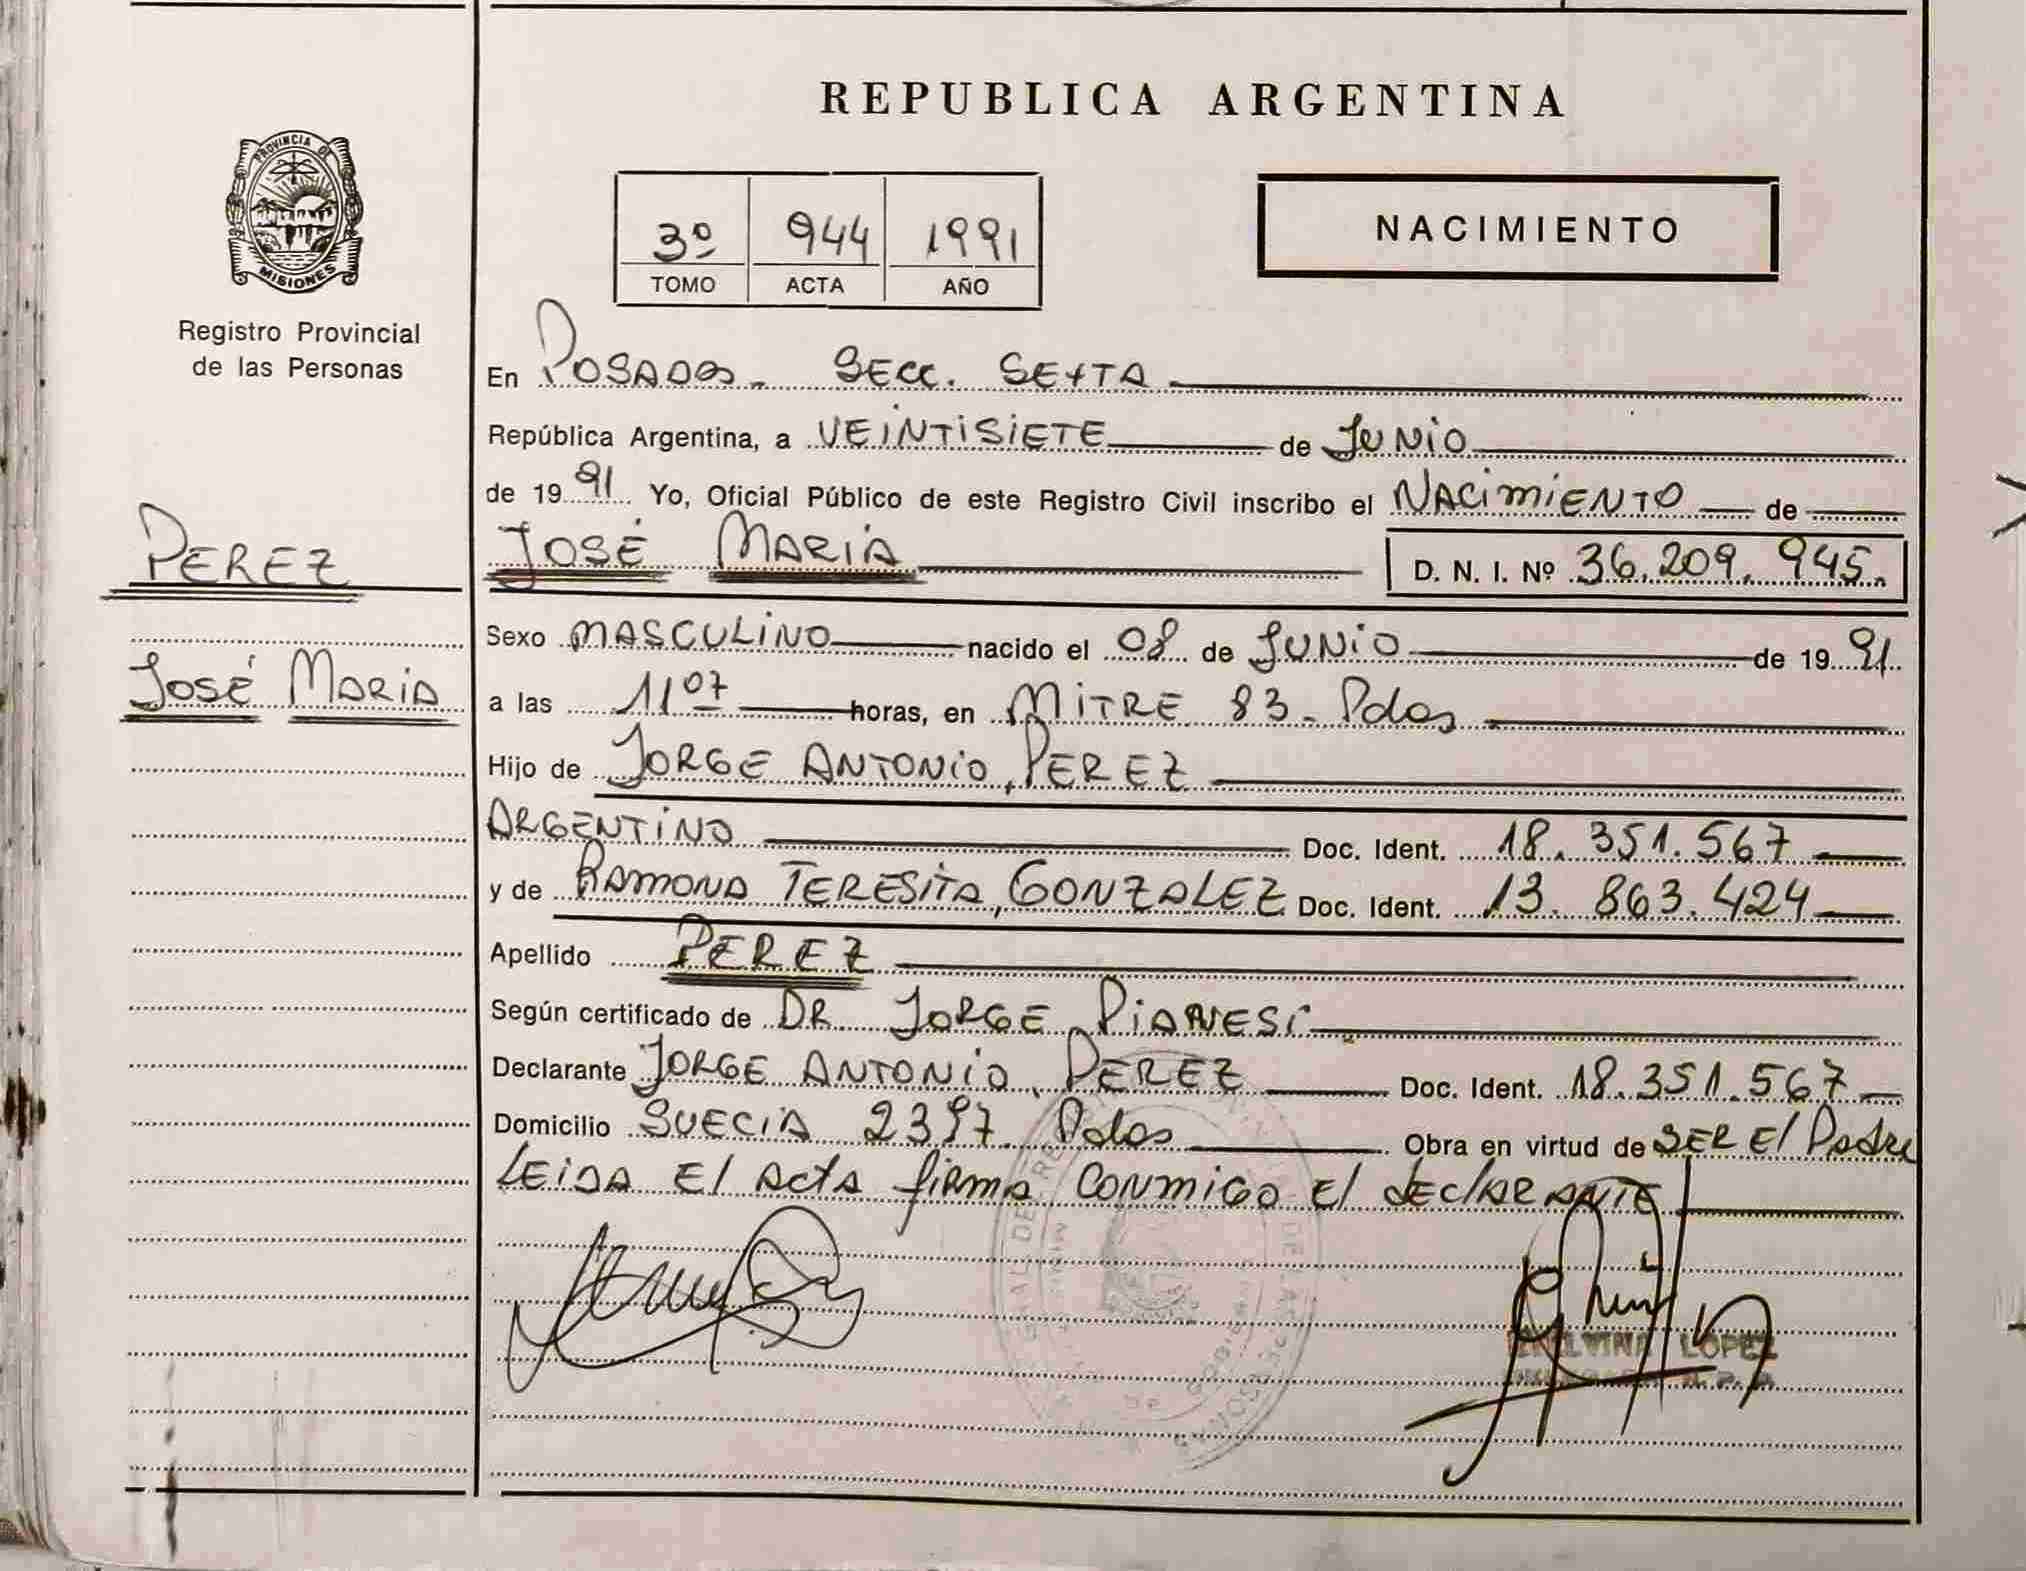 REPUBLICA ARGENTINA
PROVINCIA DE
MISIONES
Registro Provincial
de las Personas
3º 944 1991
TOMO ACTA AÑO
NACIMIENTO
En Posadas. Secc. Sexta
República Argentina, a Veintisiete de Junio
de 1991 Yo, Oficial Público de este Registro Civil inscribo el Nacimiento de
Perez
José Maria D. N. I. Nº 36.209.945.
Sexo Masculino nacido el 08 de Junio de 1991
José Maria
a las 11 07 horas, en Mitre 83. Pdas
Hijo de Jorge Antonio, Perez
Argentino Doc. Ident. 18.351.567
y de Ramona Teresita, Gonzalez Doc. Ident. 13.863.424
Apellido Perez
Según certificado de Dr Jorge Pianesi
Declarante Jorge Antonio, Perez Doc. Ident. 18.351.567
Domicilio Suecia 2397. Pdas Obra en virtud de ser el Padre
Leida el acta firma conmigo el declarante
LOPEZ